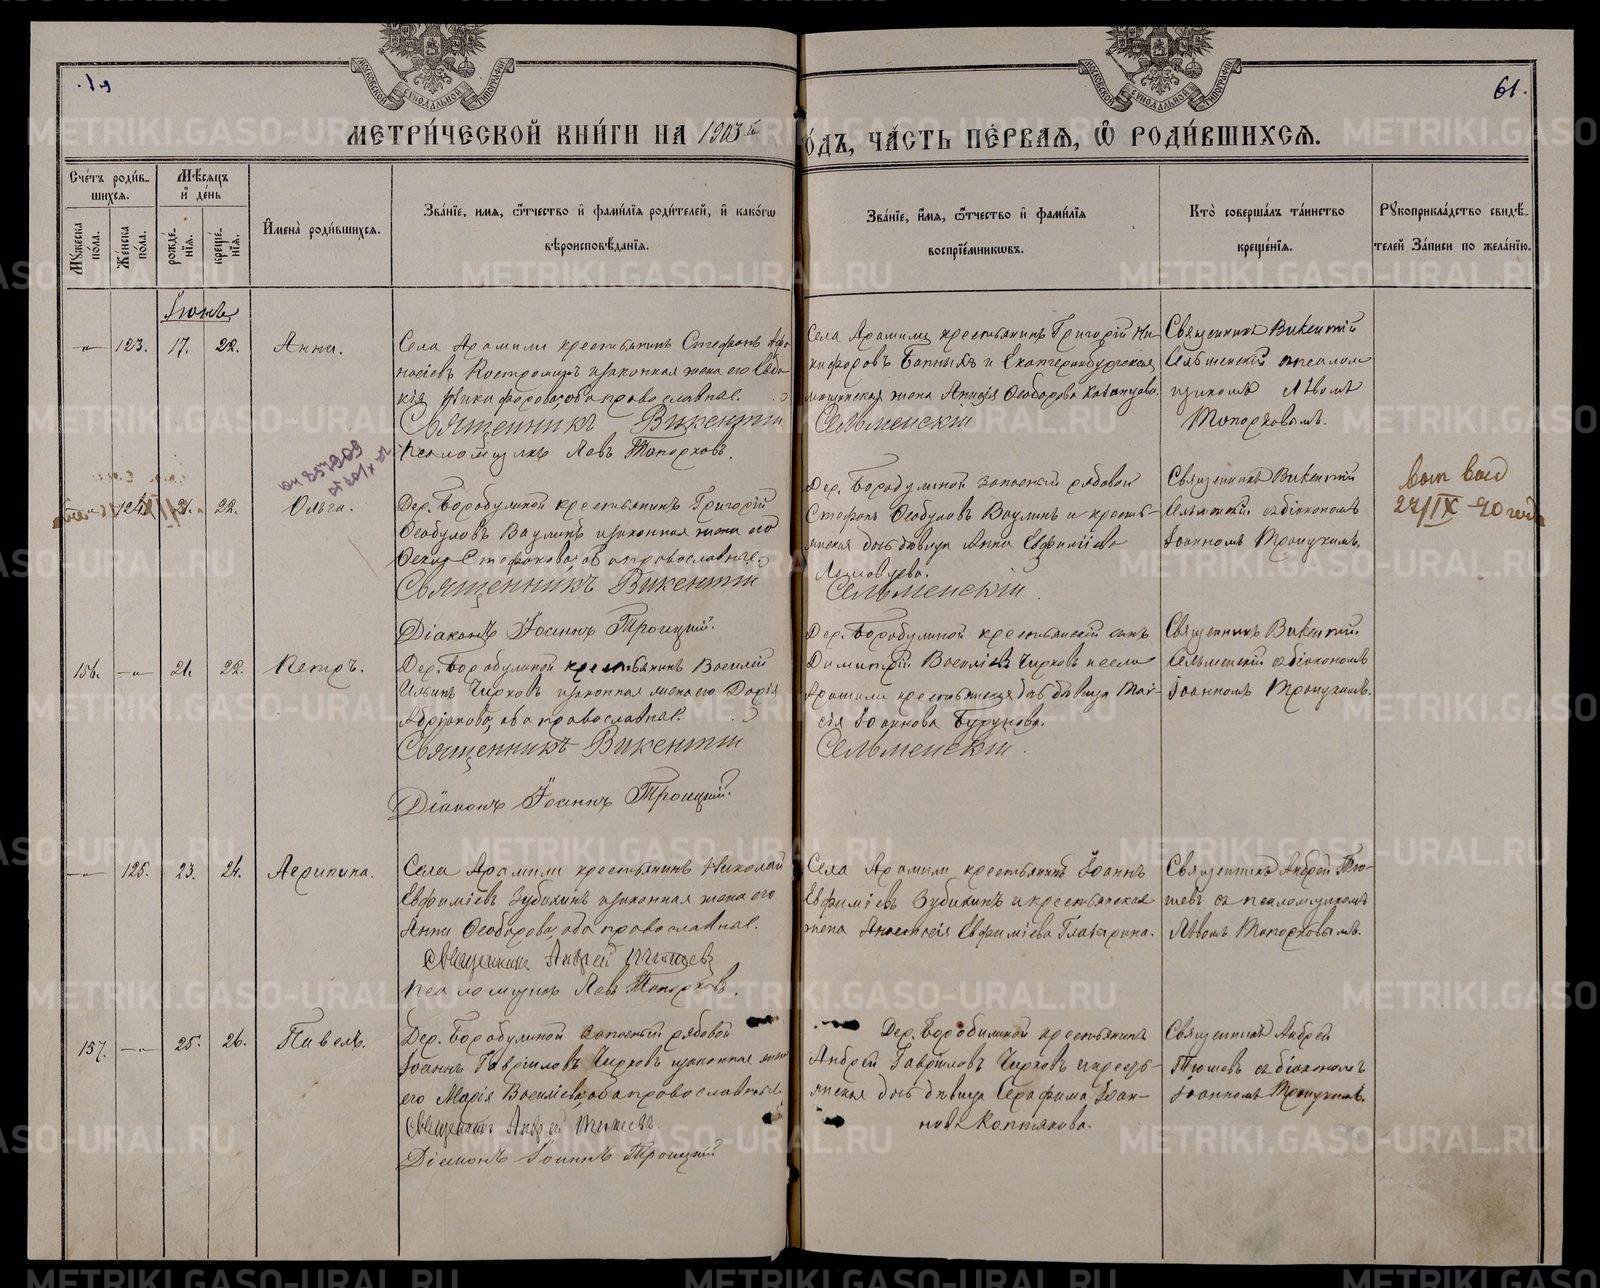 61.
МЕТРИ́ЧЕСКОЙ КНИ́ГИ НА 1903 й
О́ДЪ, ЧА́СТЬ ПЕ́РВАЯ, Ѿ РОДИ́ВШИХСЯ.
Сче́тъ роди́в-
шихся.
Мѣ́сяцъ
и҆ де́нь
Му́жеска
по́ла.
Же́нска
по́ла.
рожде́-
нїя.
креще́-
нїя.
И҆мена̀ роди́вшихся.
Зва́нїе, имя, ѻ҆́тчество и҆ фами́лїя роди́телей, и҆ како́гѡ
вѣроисповѣ́данїя.
Зва́нїе, и҆́мя, ѻ҆́тчество и҆ фами́лїя
воспрїе́мникѡвъ.
Кто̀ соверша́лъ та́инство
креще́нїя.
Рꙋкоприкла́дство свидѣ́-
телей за́писи по жела́нїю.
Іюнь
123. 17. 22. Анна.
Села Арамили крестьянинъ Стефанъ Афа-
насіевъ Костроминъ и законная жена его Евдо-
кія Никифорова, оба православные.
Священникъ Викентій
Псаломщикъ Левъ Топорковъ.
Села Арамили крестьянинъ Григорій Ни-
кифоровъ и Екатеринбургская
мѣщанская жена Ѳеодорова
Сельменскій
Священникъ Викентій
Сельменскій псалом-
щикомъ Львомъ
Топорковымъ.
124. 21. 22. Ольга.
Дер. Бородулиной крестьянинъ Григорій
Ѳеодуловъ Ваулинъ и законная жена его
Стефанова, оба православные.
Священникъ Викентій
Діаконъ Іоаннъ Троицкій.
Дер. Бородулиной запасный рядовой
Стефанъ Ѳеодуловъ Ваулинъ и кресть-
янская дочь дѣвица Анна Евфиміева
Сельменскій.
Священникъ Викентій
Сельменскій съ діакономъ
Іоанномъ Троицкимъ.
27/IX-40 года
156. 21. 22. Петръ.
Дер. Бородулиной крестьянинъ Василій
Ильинъ Чирковъ и законная жена его Дарія
Адріанова, оба православные.
Священникъ Викентій
Діаконъ Іоаннъ Троицкій.
Дер. Бородулиной крестьянскій сынъ
Димитрій Василіевъ Чирковъ и села
Арамили крестьянская дочь дѣвица Таи-
сія Іоаннова
Сельменскій.
Священникъ Викентій
Сельменскій съ діакономъ
Іоанномъ Троицкимъ.
125. 23. 24. Агрипина.
Села Арамили крестьянинъ Николай
Евфиміевъ Зубихинъ и законная жена его
Анна Ѳеодорова, оба православные.
Священникъ Андрей
Псаломщикъ Левъ Топорковъ.
Села Арамили крестьянинъ Іоаннъ
Евфиміевъ Зубихинъ и крестьянская
жена Анастасія Евфиміева
Священникъ Андрей
съ псаломщикомъ
Львомъ Топорковымъ.
157. 25. 26. Павелъ.
Дер. Бородулиной запасный рядовой
Іоаннъ Гавріиловъ Чирковъ и законная жена
его Марія Василіева, оба православные.
Священникъ Андрей
Діаконъ Іоаннъ Троицкій
Дер. Бородулиной крестьянинъ
Андрей Гавріиловъ Чирковъ и кресть-
янская дочь дѣвица Серафима Іоан-
нова Коптякова.
Священникъ Андрей
съ діакономъ
Іоанномъ Троицкимъ.